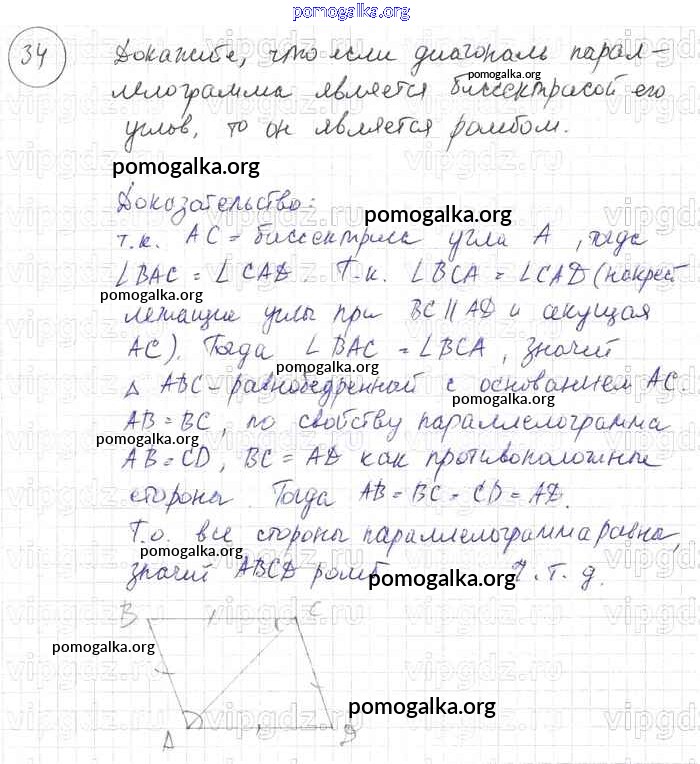 pomogalka.org
34
Докажите, что если диагональ парал-
лелограмма является биссектрисой его
pomogalka.org
углов, то он является ромбом.
pomogalka.org
Доказательство:
pomogalka.org
т.к. AC = биссектриса угла A, тогда
∠BAC = ∠CAD. Т.к. ∠BCA = ∠CAD (накрест
pomogalka.org
лежащие углы при BC || AD и секущая
AC). Тогда ∠BAC = ∠BCA, значит
pomogalka.org
△ ABC - равнобедренной с основанием AC.
pomogalka.org
AB = BC, по свойству параллелограмма
pomogalka.org
AB = CD, BC = AD как противоположные
стороны. Тогда AB = BC = CD = AD.
Т.о. все стороны параллелограмма равны,
pomogalka.org
значит ABCD ромб Ч.т.д.
pomogalka.org
B C
pomogalka.org
pomogalka.org
A D